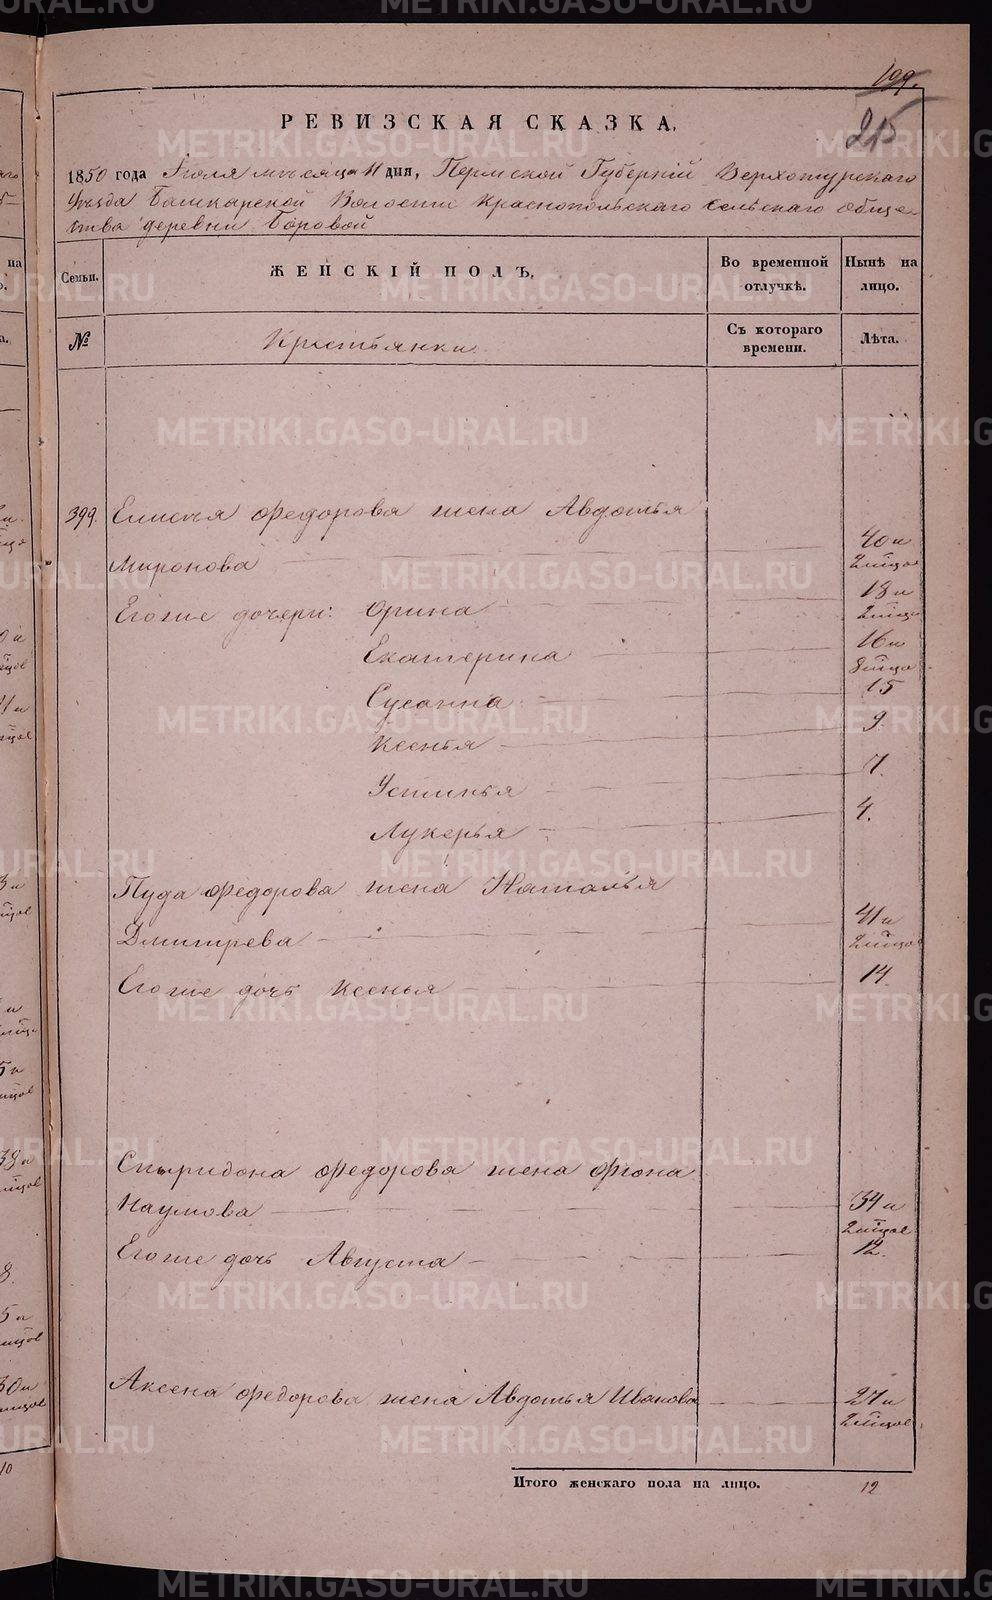 199.
215
РЕВИЗСКАЯ СКАЗКА.
1850 года Iюля мѣсяца 11 дня, Пермской Губернiй Верхотурскаго
Уѣзда Башкарской Волости Краснопольскаго сельскаго обще-
ства деревни Боровой
Семьи. ЖЕНСКІЙ ПОЛЪ. Во временной отлучкѣ. Нынѣ на лицо.
№ Крестьянки Съ котораго времени. Лѣта.
399. Елисея Федорова жена Авдотья
Миронова 40 и 2 м҃цов
Его же дочери: Орина 18 и 2 м҃ца
Екатерина 16 и 8 м҃ца
Сусанна 15
Ксенья 9.
Устинья 7.
Лукерья 4.
Пуда Федорова жена Наталья
Дмитрева 41 и 2 м҃цов
Его же дочь Ксенья 14.
Спыридона Федорова жена Фiона
Наумова 34 и 2 м҃цов
Его же дочь Августа 12.
Аксена Федорова жена Авдотья Иванова 27 и 2 м҃цов
Итого женскаго пола на лицо. 12
METRIKI.GASO-URAL.RU